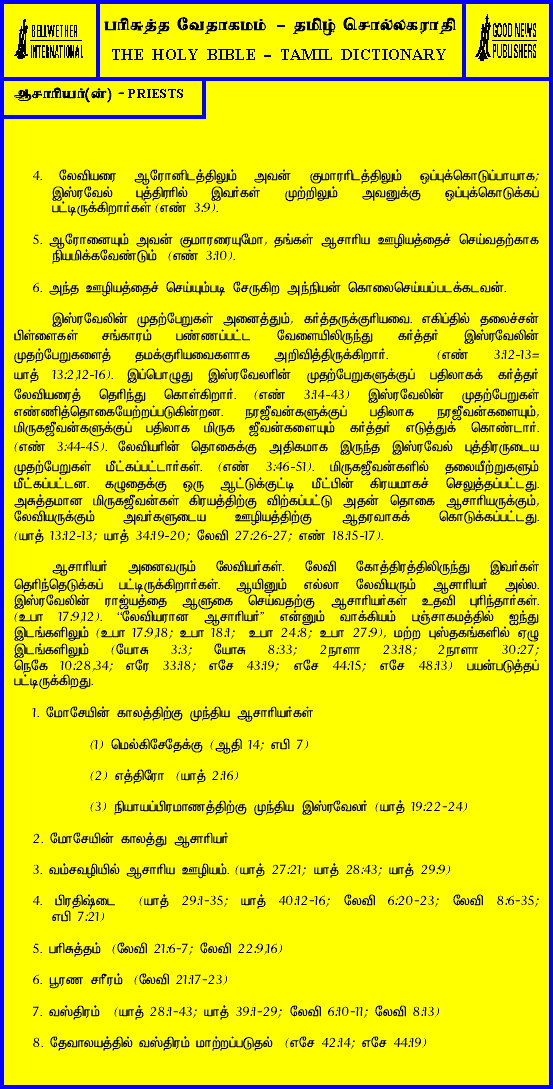 BELLWETHER
INTERNATIONAL
பரிசுத்த வேதாகமம் - தமிழ் சொல்லகராதி
THE HOLY BIBLE – TAMIL DICTIONARY
GOOD NEWS
PUBLISHERS
ஆசாரியர்(ன்) - PRIESTS
4. லேவியரை ஆரோனிடத்திலும் அவன் குமாரரிடத்திலும் ஒப்புக்கொடுப்பாயாக;
இஸ்ரவேல் புத்திரரில் இவர்கள் முற்றிலும் அவனுக்கு ஒப்புக்கொடுக்கப்
பட்டிருக்கிறார்கள் (எண் 3:9).
5. ஆரோனையும் அவன் குமாரரையுமோ, தங்கள் ஆசாரிய ஊழியத்தைச் செய்வதற்காக
நியமிக்கவேண்டும் (எண் 3:10).
6. அந்த ஊழியத்தைச் செய்யும்படி சேருகிற அந்நியன் கொலைசெய்யப்படக்கடவன்.
இஸ்ரவேலின் முதற்பேறுகள் அனைத்தும், கர்த்தருக்குரியவை. எகிப்தில் தலைச்சன்
பிள்ளைகள் சங்காரம் பண்ணப்பட்ட வேளையிலிருந்து கர்த்தர் இஸ்ரவேலின்
முதற்பேறுகளைத் தமக்குரியவைகளாக அறிவித்திருக்கிறார். (எண் 3:12-13=
யாத் 13:2,12-16). இப்பொழுது இஸ்ரவேலரின் முதற்பேறுகளுக்குப் பதிலாகக் கர்த்தர்
லேவியரைத் தெரிந்து கொள்கிறார். (எண் 3:14-43) இஸ்ரவேலின் முதற்பேறுகள்
எண்ணித்தொகையேற்றப்படுகின்றன. நரஜீவன்களுக்குப் பதிலாக நரஜீவன்களையும்,
மிருகஜீவன்களுக்குப் பதிலாக மிருக ஜீவன்களையும் கர்த்தர் எடுத்துக் கொண்டார்.
(எண் 3:44-45). லேவியரின் தொகைக்கு அதிகமாக இருந்த இஸ்ரவேல் புத்திரருடைய
முதற்பேறுகள் மீட்கப்பட்டார்கள். (எண் 3:46-51). மிருகஜீவன்களில் தலையீற்றுகளும்
மீட்கப்பட்டன. கழுதைக்கு ஒரு ஆட்டுக்குட்டி மீட்பின் கிரயமாகச் செலுத்தப்பட்டது.
அசுத்தமான மிருகஜீவன்கள் கிரயத்திற்கு விற்கப்பட்டு அதன் தொகை ஆசாரியருக்கும்,
லேவியருக்கும் அவர்களுடைய ஊழியத்திற்கு ஆதரவாகக் கொடுக்கப்பட்டது.
(யாத் 13:12-13; யாத் 34:19-20; லேவி 27:26-27; எண் 18:15-17).
ஆசாரியர் அனைவரும் லேவியர்கள். லேவி கோத்திரத்திலிருந்து இவர்கள்
தெரிந்தெடுக்கப் பட்டிருக்கிறார்கள். ஆயினும் எல்லா லேவியரும் ஆசாரியர் அல்ல.
இஸ்ரவேலின் ராஜ்யத்தை ஆளுகை செய்வதற்கு ஆசாரியர்கள் உதவி புரிந்தார்கள்.
(உபா 17:9,12). "லேவியரான ஆசாரியர்" என்னும் வாக்கியம் பஞ்சாகமத்தில் ஐந்து
இடங்களிலும் (உபா 17:9,18; உபா 18:1; உபா 24:8; உபா 27:9), மற்ற புஸ்தகங்களில் ஏழு
இடங்களிலும் (யோசு 3:3; யோசு 8:33; 2நாளா 23:18; 2நாளா 30:27;
நெகே 10:28,34; எரே 33:18; எசே 43:19; எசே 44:15; எசே 48:13) பயன்படுத்தப்
பட்டிருக்கிறது.
1. மோசேயின் காலத்திற்கு முந்திய ஆசாரியர்கள்
(1) மெல்கிசேதேக்கு (ஆதி 14; எபி 7)
(2) எத்திரோ (யாத் 2:16)
(3) நியாயப்பிரமாணத்திற்கு முந்திய இஸ்ரவேலர் (யாத் 19:22-24)
2. மோசேயின் காலத்து ஆசாரியர்
3. வம்சவழியில் ஆசாரிய ஊழியம். (யாத் 27:21; யாத் 28:43; யாத் 29:9)
4. பிரதிஷ்டை (யாத் 29:1-35; யாத் 40:12-16; லேவி 6:20-23; லேவி 8:6-35;
எபி 7:21)
5. பரிசுத்தம் (லேவி 21:6-7; லேவி 22:9,16)
6. பூரண சரீரம் (லேவி 21:17-23)
7. வஸ்திரம் (யாத் 28:1-43; யாத் 39:1-29; லேவி 6:10-11; லேவி 8:13)
8. தேவாலயத்தில் வஸ்திரம் மாற்றப்படுதல் (எசே 42:14; எசே 44:19)